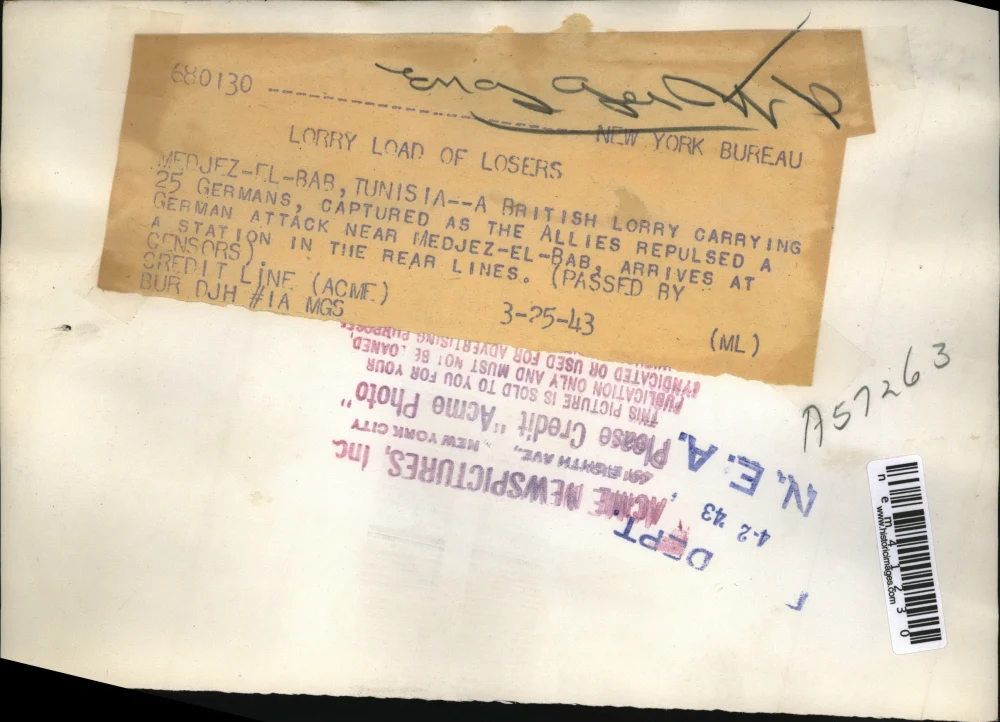 680130
NEW YORK BUREAU
LORRY LOAD OF LOSERS
MEDJEZ-EL-BAB, TUNISIA--A BRITISH LORRY CARRYING
25 GERMANS, CAPTURED AS THE ALLIES REPULSED A
GERMAN ATTACK NEAR MEDJEZ-EL-BAB, ARRIVES AT
A STATION IN THE REAR LINES. (PASSED BY
CENSORS).
CREDIT LINE (ACME)
BUR DJH #1A MGS 3-25-43 (ML)
A57263
DEPT.
N. E. A.
4-2 '43
ACME NEWSPICTURES, Inc.
461 EIGHTH AVE., NEW YORK CITY
Please Credit "Acme Photo"
THIS PICTURE IS SOLD TO YOU FOR YOUR
PUBLICATION ONLY AND MUST NOT BE LOANED,
SYNDICATED OR USED FOR ADVERTISING PURPOSES
nem41230
www.historicimages.com